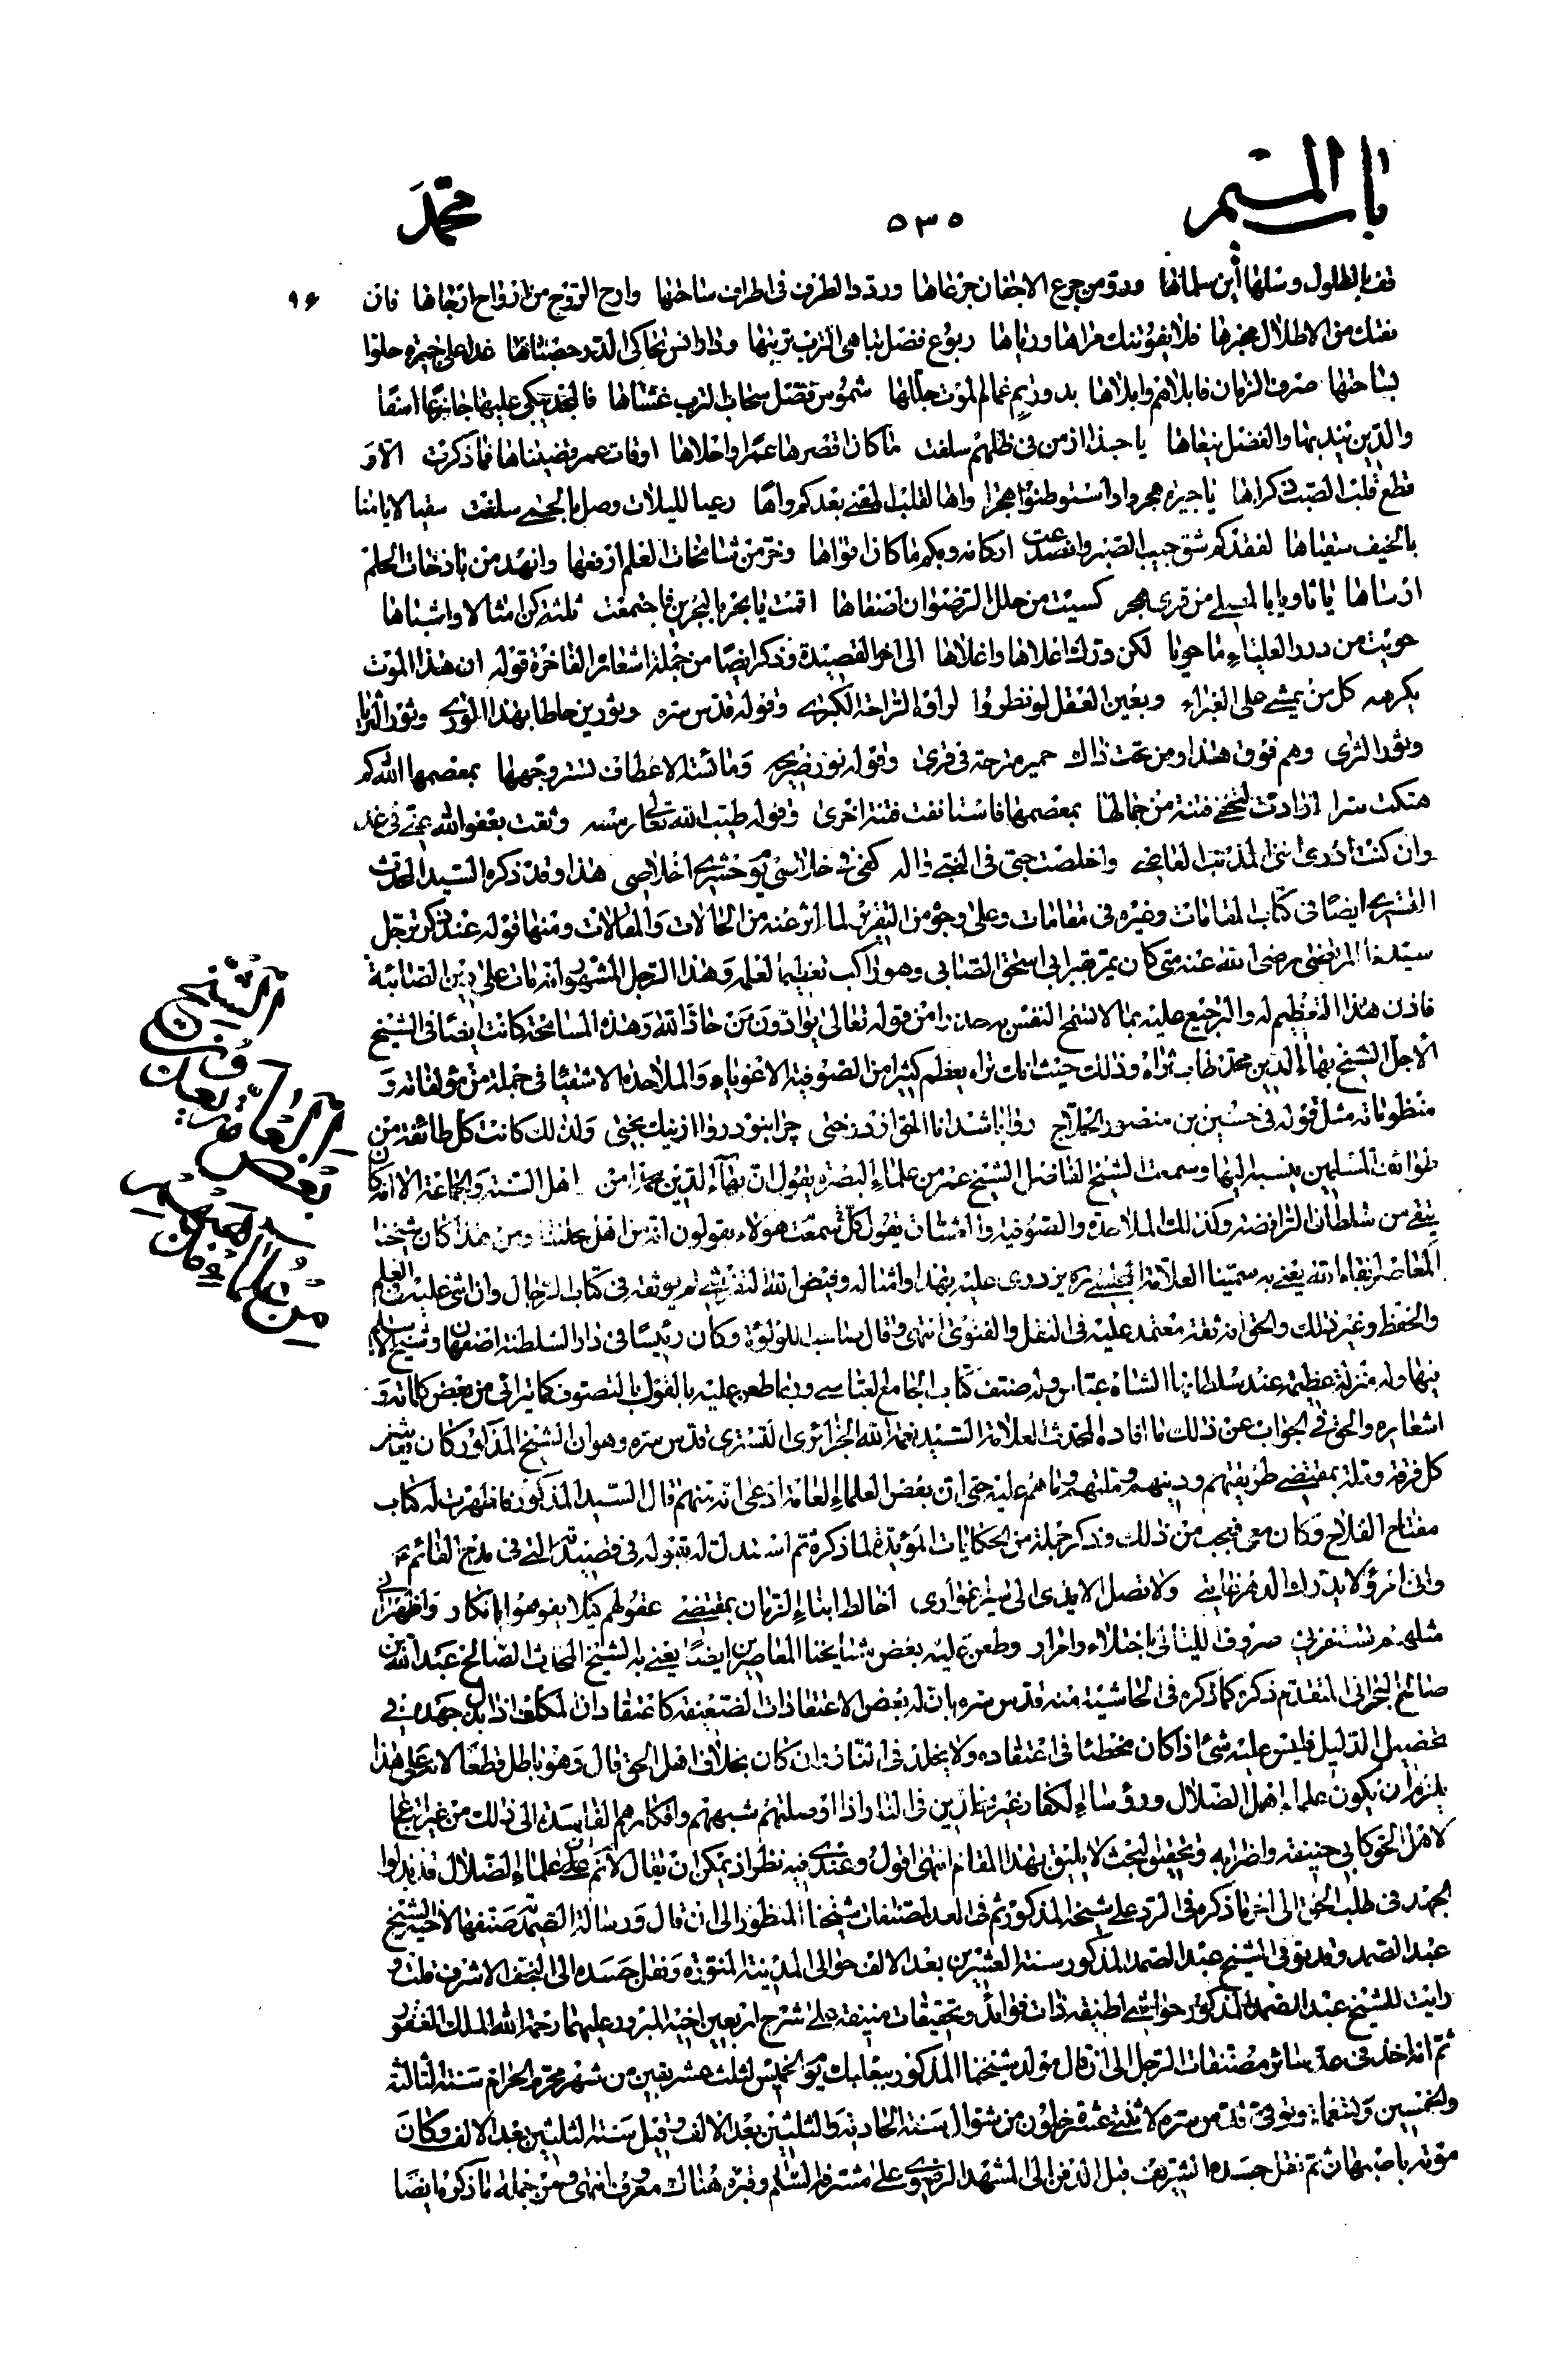 باب الميم
٥٣٥
محمد
قف بالطلول وسلها أين سلماها ورو من جرع الاجفان جرعاها وردد الطرف فى اطراف ساحتها وارج الروح من ارواح ارجاها فان
يفتك من الاطلال مخبرها فلا يفوتنك مراها ورياها ربوع فضل تباهى الترب تربتها ودار انس تحاكى الدر حصباها غدا على جيرة حلوا
بساحتها صرف الزمان فابلاهم وابلاها بدور تم غمام الموت جللها شموس فضل سحاب الترب غشاها فالمجد يبكى عليها جازعا اسفا
والدين يندبها والفضل ينعاها يا حبذا ازمن فى ظلهم سلفت ما كان اقصرها عمرا واحلاها اوقات عمر قضيناها فما ذكرت الا و
قطع قلب الصب ذكراها يا جيرة هجروا واستوطنوا هجرا واها لقلب المعنى بعدكم واها رعيا لليلات وصل بالحمى سلفت سقيا لايامنا
بالخيف سقياها لفقدكم شق جيب الصبر وانصدعت اركانه وبكم ما كان اقواها وخر من شامخات العلم ارفعها وانهد من باذخات الحلم
ارساها يا ثاويا بالمصلى من قرى هجر كسيت من حلل الرضوان اضفاها اقمت يا بحر بالبحرين فاجتمعت ثلثة كن امثالا واشباها
حويت من درر العلياء ما حويا لكن درك اعلاها واغلاها الى اخر القصيدة وذكر ايضا من جملة اشعاره الفاخرة قوله ان هذا الموت
يكرهه كل من يمشى على الغبراء وبعين العقل لو نظروا لراوه الراحة الكبرى وقوله قدس سره وثورين حاطا بهذا الورى وثور الثريا
وثور الثرى وهم فوق هذا ومن تحت ذاك حمير مسرحة فى قرى وقوله نور ضريحه ومائسة الاعطاف تستر وجهها بمعصمها لله كم
هتكت سترا ارادت لتخفى فتنة من جمالها بمعصمها فاستانفت فتنة اخرى وقوله طيب الله تعالى رمسه وثقت بعفو الله عنى فى غد
وان كنت ادرى اننى المذنب العاصى واخلصت حبى فى النبى واله كفى فى خلاصى يوم حشرى اخلاصى هذا وقد ذكره السيد المحدث
التسترى ايضا فى كتاب المقامات وغيره فى مقامات وعلى وجوه من التقريب لما اثر عنه من الحالات والمقالات ومنها قوله عند ذكر ترجل
سيدنا المرتضى رضى الله عنه متى كان يمر بقبر ابى اسحق الصابى وهو راكب تعظيما لعلمه وهذا الرجل المشهور انه مات على دين الصابئة
فاذن هذا التعظيم له والترجيع عليه بما لا تسمح النفس به حذرا من قوله تعالى يوادون من حاد الله وهذه المسامحة كانت ايضا فى الشيخ
الاجل الشيخ بهاء الدين محمد طاب ثراه وذلك حيث انك تراه يعظم كثيرا من الصوفية الاغوياء والملاحدة الاشقيا فى جملة من مؤلفاته و
منظوماته مثل قوله فى حسين بن منصور الحلاج روا باشد انا الحق از درختى چرا نبود روا از نيك بختى ولذلك كانت كل طائفة من
طوائف المسلمين ينسبه اليها وسمعت الشيخ الفاضل الشيخ عمر من علماء البصرة يقول ان بهاء الدين محمدا من اهل السنة والجماعة الا انه كان
يتقى من سلطان الرافضة وكذلك الملاحدة والصوفية والعشاق يقول كل سمعت هؤلاء يقولون انه من اهل نحلتنا ومن هذا كان شيخنا
المعاصر ابقاه الله يعنى به سمينا العلامة المجلسى ره يزرى عليه بهذا وامثاله وفيض الله التفرشى لم يوثقه فى كتاب الرجال وان اثنى عليه بالعلم
والحفظ وغير ذلك والحق انه ثقة معتمد عليه فى النقل والفتوى انتهى وقال صاحب اللؤلؤة وكان رئيسا فى دار السلطنة اصفهان وشيخ الاسلم
فيها وله منزلة عظيمة عند سلطانها الشاه عباس وله صنف كتاب الجامع العباسى وربما طعن عليه بالقول بالتصوف كما يتراائى من بعض كلماته و
اشعاره والحق فى الجواب عن ذلك ما افاده المحدث العلامة السيد نعمة الله الجزائرى التسترى قدس سره وهو ان الشيخ المذكور كان يعاشر
كل فرقة وملة بمقتضى طريقتهم ودينهم وملتهم وما هم عليه حتى ان بعض العلماء العامة ادعى انه منهم قال السيد المذكور فاظهرت له كتاب
مفتاح الفلاح وكان معى فعجب من ذلك وذكر جملة من الحكايات المؤيدة لما ذكره ثم استدل له بقوله فى قصيدته التى فى مدح القائم ع
وانى امرؤ لا يدرك الدهر غايتى ولا تصل الايدى الى سير اغوارى اخالط ابناء الزمان بمقتضى عقولهم كيلا يفوهوا بانكار واظهر انى
مثلهم تستفزنى صروف الليالى باختلاء وامرار وطعن عليه بعض مشايخنا المعاصرين ايضا يعنى به الشيخ المحدث الصالح عبد الله بن
صالح البحرانى المتقدم ذكره كما ذكره فى الحاشية منه قدس سره بان له بعض الاعتقادات الضعيفة كاعتقاد ان المكلف اذا بذل جهده فى
تحصيل الدليل فليس عليه شئ اذا كان مخطئا فى اعتقاده ولا يخلد فى النار وان كان بخلاف اهل الحق قال وهو باطل قطعا لانه على هذا
يلزم ان يكون علماء اهل الضلال ورؤساء الكفار غير مخلدين فى النار اذا اوصلتهم شبههم وافكارهم الفاسدة الى ذلك من غير اتباع
لاهل الحق كابى حنيفة واضرابه وتحقيق البحث لا يليق بهذا المقام انتهى اقول وعندى فيه نظر اذ يمكن ان يقال لانم ان علماء الضلال قد بذلوا
الجهد فى طلب الحق الى اخر ما ذكره فى الرد على شيخه المذكور ثم فى العد لمصنفات شيخنا المنظور الى ان قال ورسالة الصمدية صنفها لاخيه الشيخ
عبد الصمد وقد توفى الشيخ عبد الصمد المذكور سنة العشرين بعد الالف حوالى المدينة المنورة ونقل جسده الى النجف الاشرف قلت و
رايت للشيخ عبد الصمد المذكور حواشى لطيفة ذات فوائد وتحقيقات منيفة على شرح اربعين اخيه المبرور عليهما رحمة الله الملك الغفور
ثم انه اخذ فى عد سائر مصنفات الرجل الى ان قال مولد شيخنا المذكور ببعلبك يوم الخميس لثلث عشر بقين من شهر محرم الحرام سنة الثالثة
والخمسين وتسعمائة وتوفى قدس سره لاثنتى عشرة خلون من شوال سنة الحادية والثلثين بعد الالف وقيل سنة الثلثين بعد الالف وكان
موته باصبهان ثم نقل جسده الشريف قبل الدفن الى المشهد الرضوى على مشرفه السلم وقبره هناك معروف انتهى ومن جملة ما ذكره ايضا
الشيخ
العاصر
بعض
من علمائه